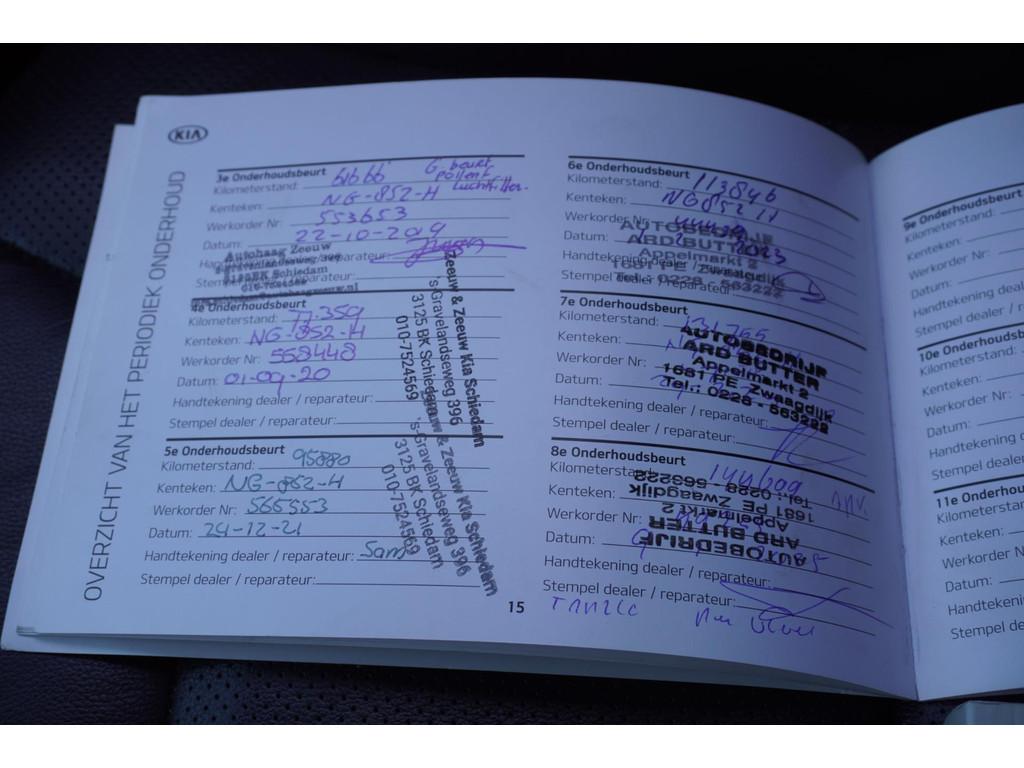 KIA
OVERZICHT VAN HET PERIODIEK ONDERHOUD
3e Onderhoudsbeurt
Kilometerstand:
Luchtfilter.
Kenteken: NG-852-H
Werkorder Nr: 553653
Datum: 22-10-2019
Autohaag Zeeuw
Stempel dealer / reparateur:
4e Onderhoudsbeurt
Kilometerstand: 77.359
Kenteken: NG-852-H
Werkorder Nr: 558448
Datum: 01-09-20
Handtekening dealer / reparateur:
Stempel dealer / reparateur:
Zeeuw & Zeeuw Kia Schiedam
's-Gravelandseweg 396
3125 BK Schiedam
010-7524569
5e Onderhoudsbeurt
Kilometerstand: 95880
Kenteken: NG-852-H
Werkorder Nr: 565553
Datum: 24-12-21
Handtekening dealer / reparateur: Sam
Stempel dealer / reparateur:
Zeeuw & Zeeuw Kia Schiedam
's-Gravelandseweg 396
3125 BK Schiedam
010-7524569
15
6e Onderhoudsbeurt
Kilometerstand: 113846
Kenteken: NG852H
Werkorder Nr:
Datum: 2023
Handtekening dealer / reparateur:
Stempel dealer / reparateur:
AUTOBEDRIJF
ARD BUTTER
Appelmarkt 2
1681 PE Zwaagdijk
Tel.: 0228 - 563222
7e Onderhoudsbeurt
Kilometerstand: 131765
Kenteken:
Werkorder Nr:
Datum:
Handtekening dealer / reparateur:
Stempel dealer / reparateur:
AUTOBEDRIJF
ARD BUTTER
Appelmarkt 2
1681 PE Zwaagdijk
Tel.: 0228 - 563222
8e Onderhoudsbeurt
Kilometerstand:
Kenteken:
Werkorder Nr:
Datum:
Handtekening dealer / reparateur:
Stempel dealer / reparateur:
AUTOBEDRIJF
ARD BUTTER
Appelmarkt 2
1681 PE Zwaagdijk
Tel.: 0228 - 563222
9e Onderhoudsbeurt
Kilometerstand:
Kenteken:
Werkorder Nr:
Datum:
Handtekening dealer
Stempel dealer /
10e Onderhoudsb
Kilometerstand:
Kenteken:
Werkorder Nr:
Datum:
Handtekening deal
Stempel dealer
11e Onderhou
Kilometerstar
Kenteken:
Werkorder N
Datum:
Handtekeni
Stempel de